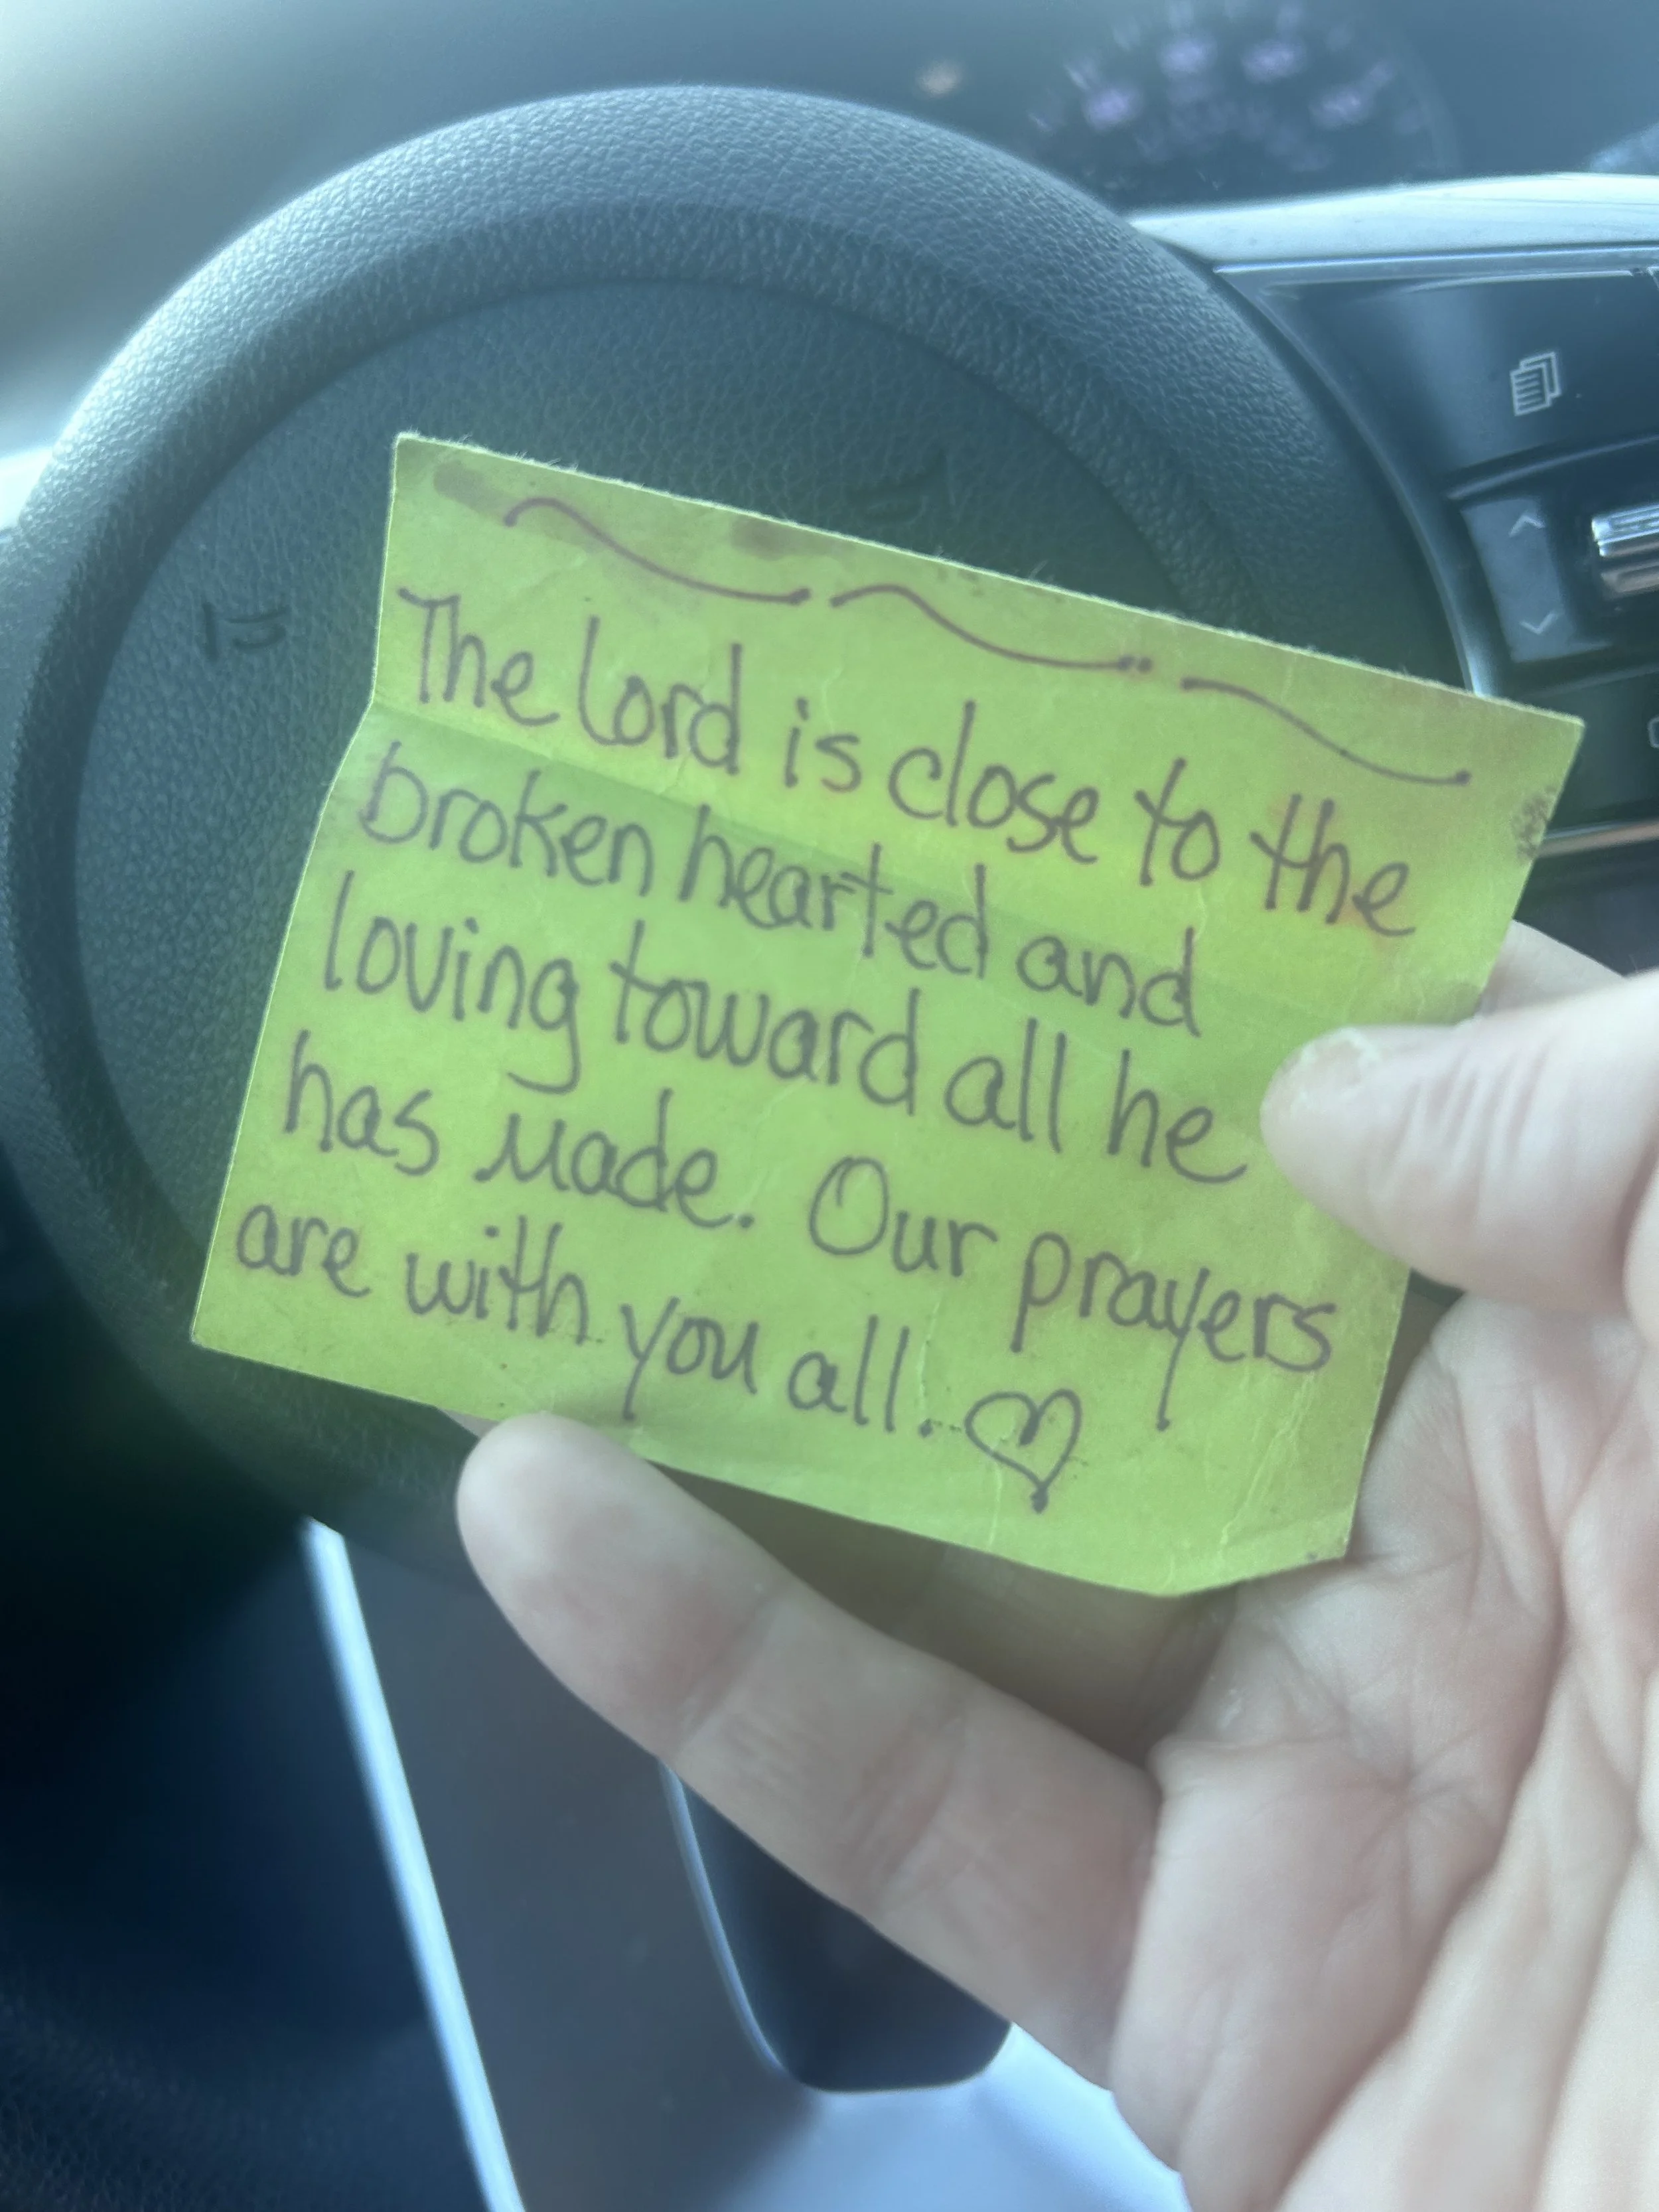 The Lord is close to the
broken hearted and
loving toward all he
has made. Our prayers
are with you all. ♡